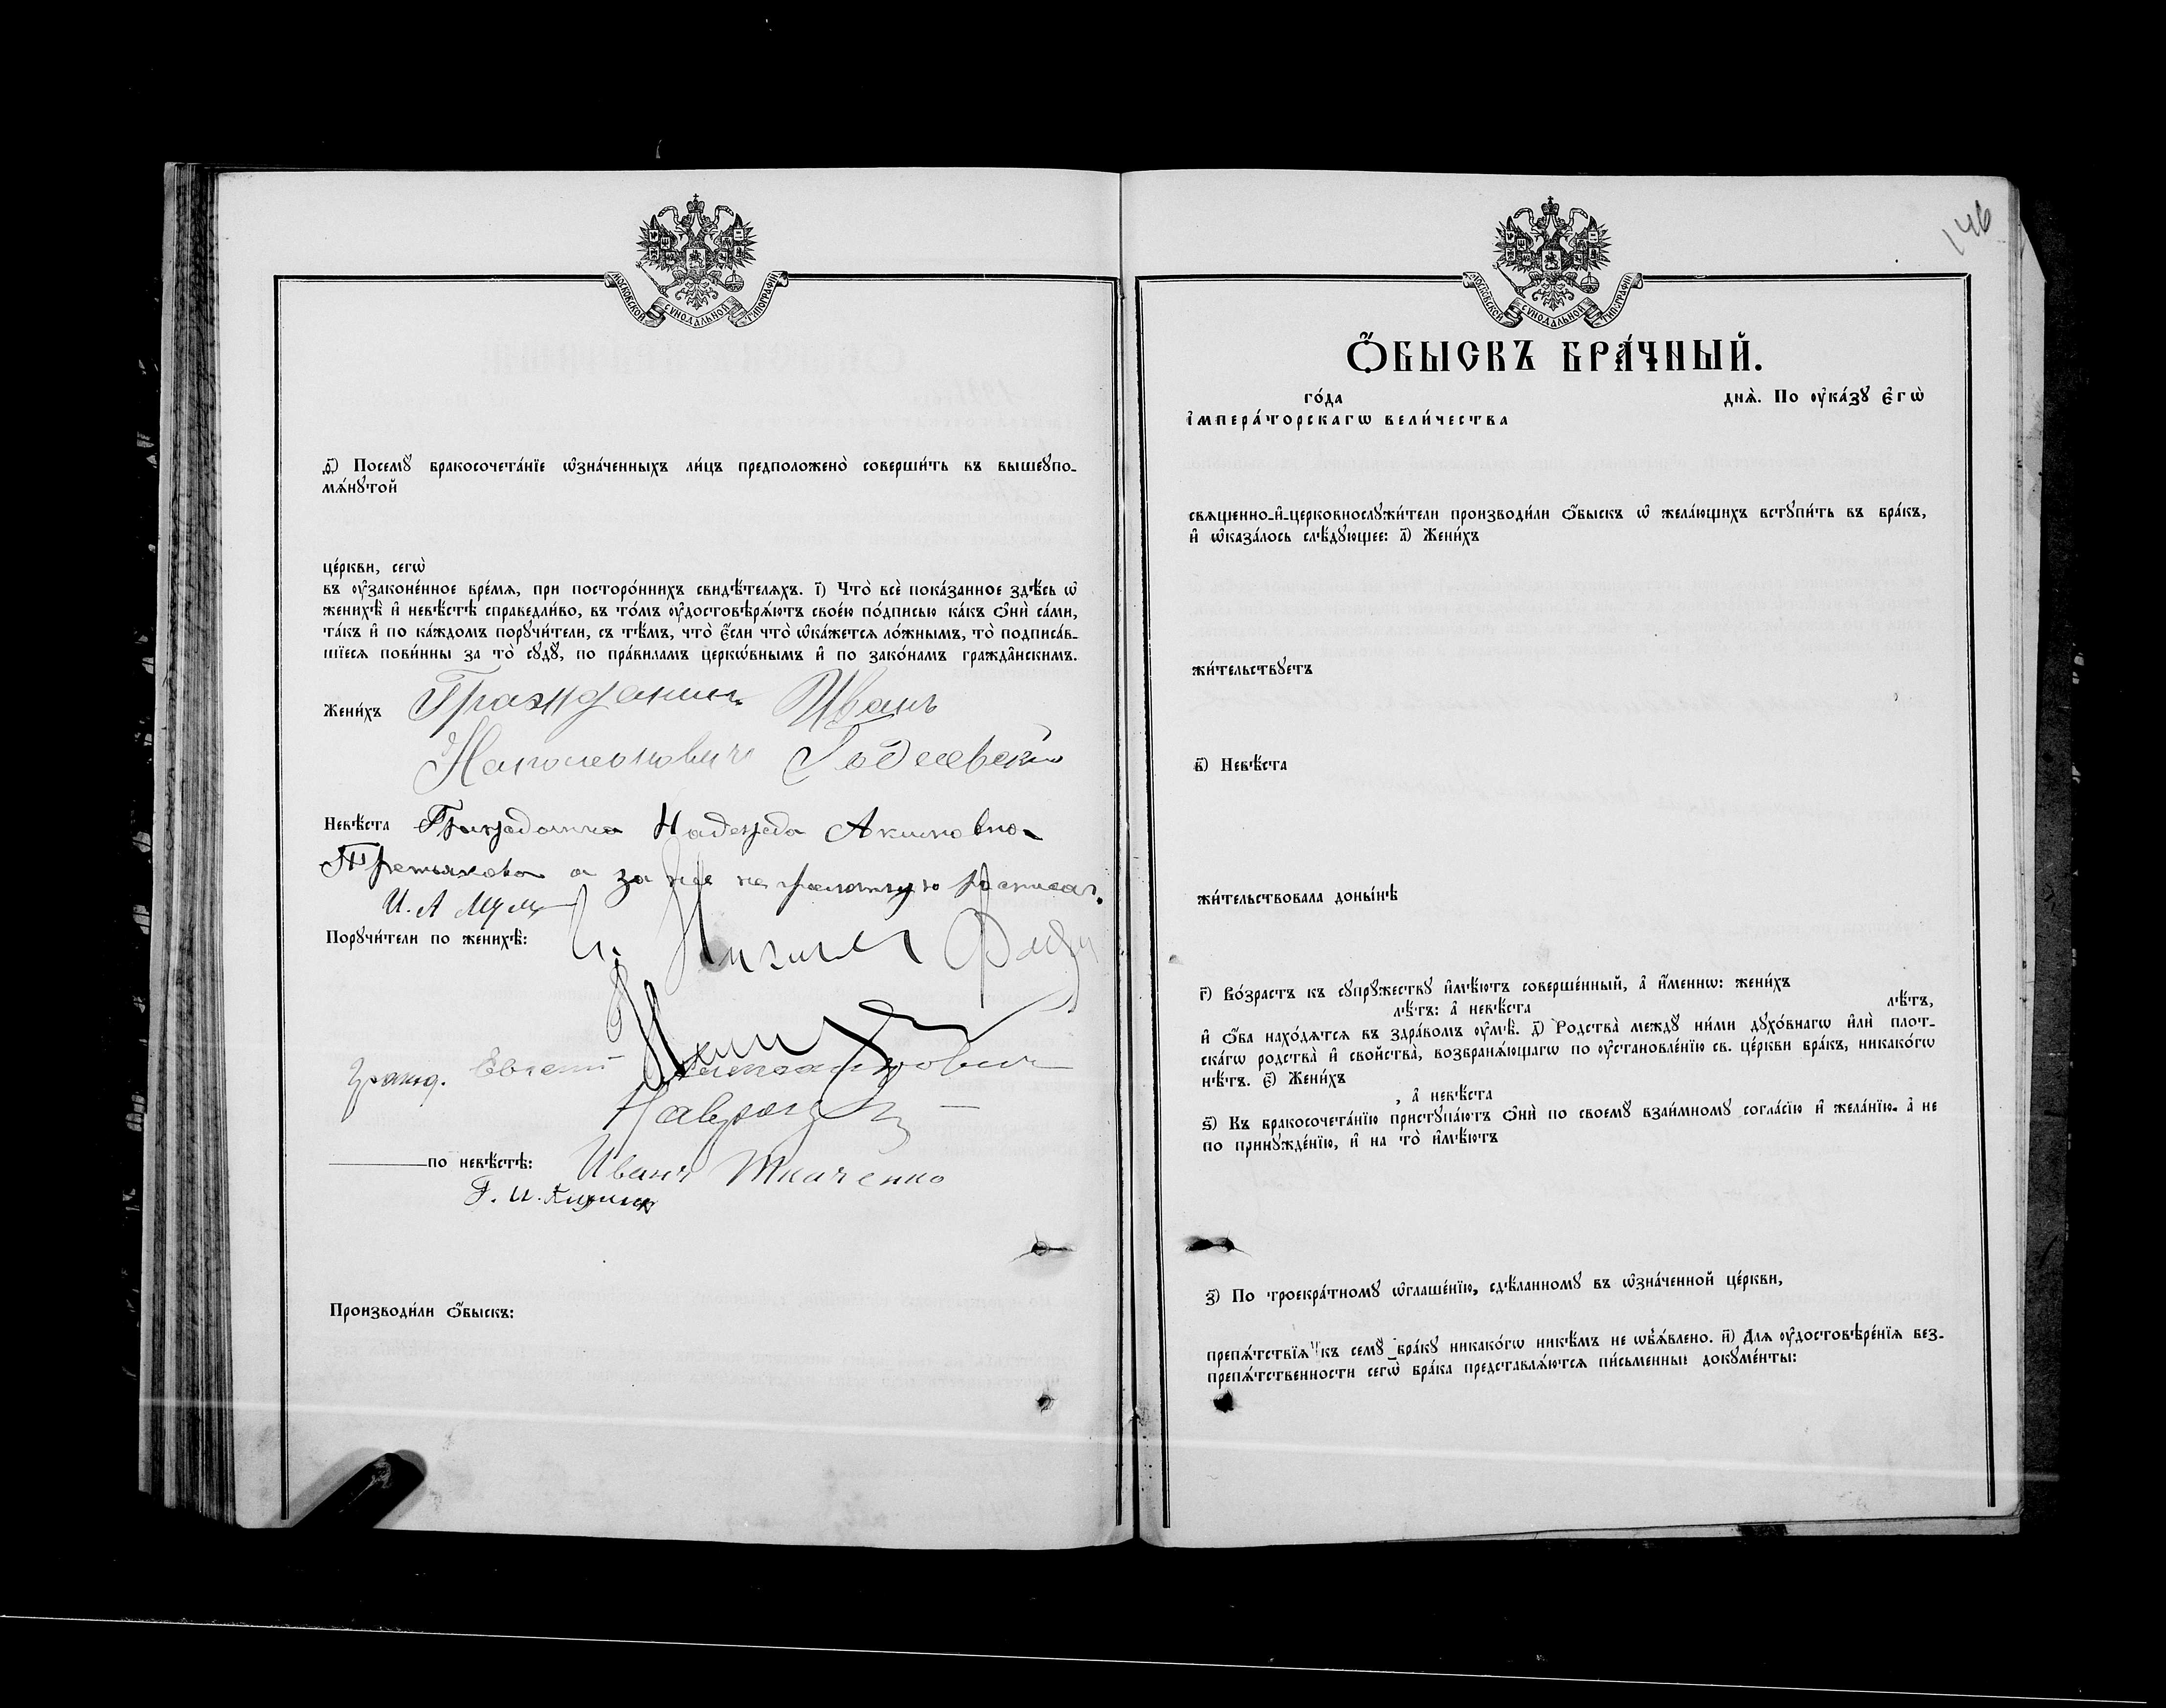 МОСКОВСКОЙ СУНОДАЛЬНОЙ ТИПОГРАФІИ
ѳ҃) Посемꙋ̀ бракосочета́нїе ѡ҆зна́ченныхъ ли́цъ предположено̀ соверши́ть въ вышеꙋпо-
мѧ́нꙋтой
це́ркви, сегѡ̀
въ ᲂу҆законе́нное вре́мѧ, при посторо́ннихъ свидѣ́телѧхъ. і҃) Что̀ всѐ пока́занное здѣ́сь ѡ҆
женихѣ̀ и҆ невѣ́стѣ справедли́во, въ то́мъ ᲂу҆достовѣрѧ́ютъ свое́ю по́дписью ка́къ ѻ҆нѝ са́ми,
та́къ и҆ по ка́ждомъ порꙋчи́тели, съ тѣ́мъ, что̀ є҆́сли что̀ ѡ҆ка́жетсѧ ло́жнымъ, то̀ подписа́в-
шїесѧ пови́нны за то̀ сꙋдꙋ̀, по пра́виламъ церкѡ́внымъ и҆ по зако́намъ гражда̑нскимъ.
Жени́хъ Гражданинъ Иванъ
Наполеоновичъ
Невѣ́ста Гражданка Надежда Акимовна
Третьякова а за нее неграмотную росписал.
И. А
Порꙋчи́тели по женихѣ̀:
гражд. Евгений Александрович
по невѣ́стѣ: Иванъ Ткаченко
Г. И.
Производи́ли ѻ҆́быскъ:
146
МОСКОВСКОЙ СУНОДАЛЬНОЙ ТИПОГРАФІИ
Ѻ҆́БЫСКЪ БРА́ЧНЫЙ.
го́да днѧ̀. По ᲂу҆ка́зꙋ є҆гѡ̀
і҆мпера́торскагѡ вели́чества
свѧщенно-и҆-церковнослꙋжи́тели производи́ли ѻ҆́быскъ ѡ҆ жела́ющихъ встꙋпи́ть въ бра́къ,
и҆ ѡ҆каза́лось слѣ́дꙋющее: а҃) Жени́хъ
жи́тельствꙋетъ
в҃) Невѣ́ста
жи́тельствовала доны́нѣ
г҃) Во́зрастъ къ сꙋпрꙋ́жествꙋ и҆мѣ́ютъ соверше́нный, а҆ и҆́меннѡ: жени́хъ
лѣ́тъ: а҆ невѣ́ста лѣ́тъ,
и҆ ѻ҆́ба нахо́дѧтсѧ въ здра́вомъ ᲂу҆мѣ̀. д҃) Родства̀ междꙋ̀ ни́ми дꙋхо́внагѡ и҆лѝ плот-
ска́гѡ родства̀ и҆ сво́йства̀, возбранѧ́ющагѡ по ᲂу҆становле́нїю св. це́ркви бра́къ, никако́гѡ
нѣ́тъ. є҃) Жени́хъ
, а҆ невѣ́ста
ѕ҃) Къ бракосочета́нїю пристꙋпа́ютъ ѻ҆нѝ по своемꙋ̀ взаи́мномꙋ согла́сїю и҆ жела́нїю. а҆ не
по принꙋжде́нїю, и҆ на то̀ и҆мѣ́ютъ
з҃) По троекра́тномꙋ ѡ҆глаше́нїю, сдѣ́ланномꙋ въ ѡ҆зна́ченной це́ркви,
препѧ́тствїѧ къ семꙋ̀ бра́кꙋ никако́гѡ никѣ́мъ не ѡ҆бѧ́влено. и҃) Длѧ ᲂу҆достовѣре́нїѧ без-
препѧ́тственности сегѡ̀ бра́ка представлѧ́ютсѧ пи́сьменные докꙋме́нты: